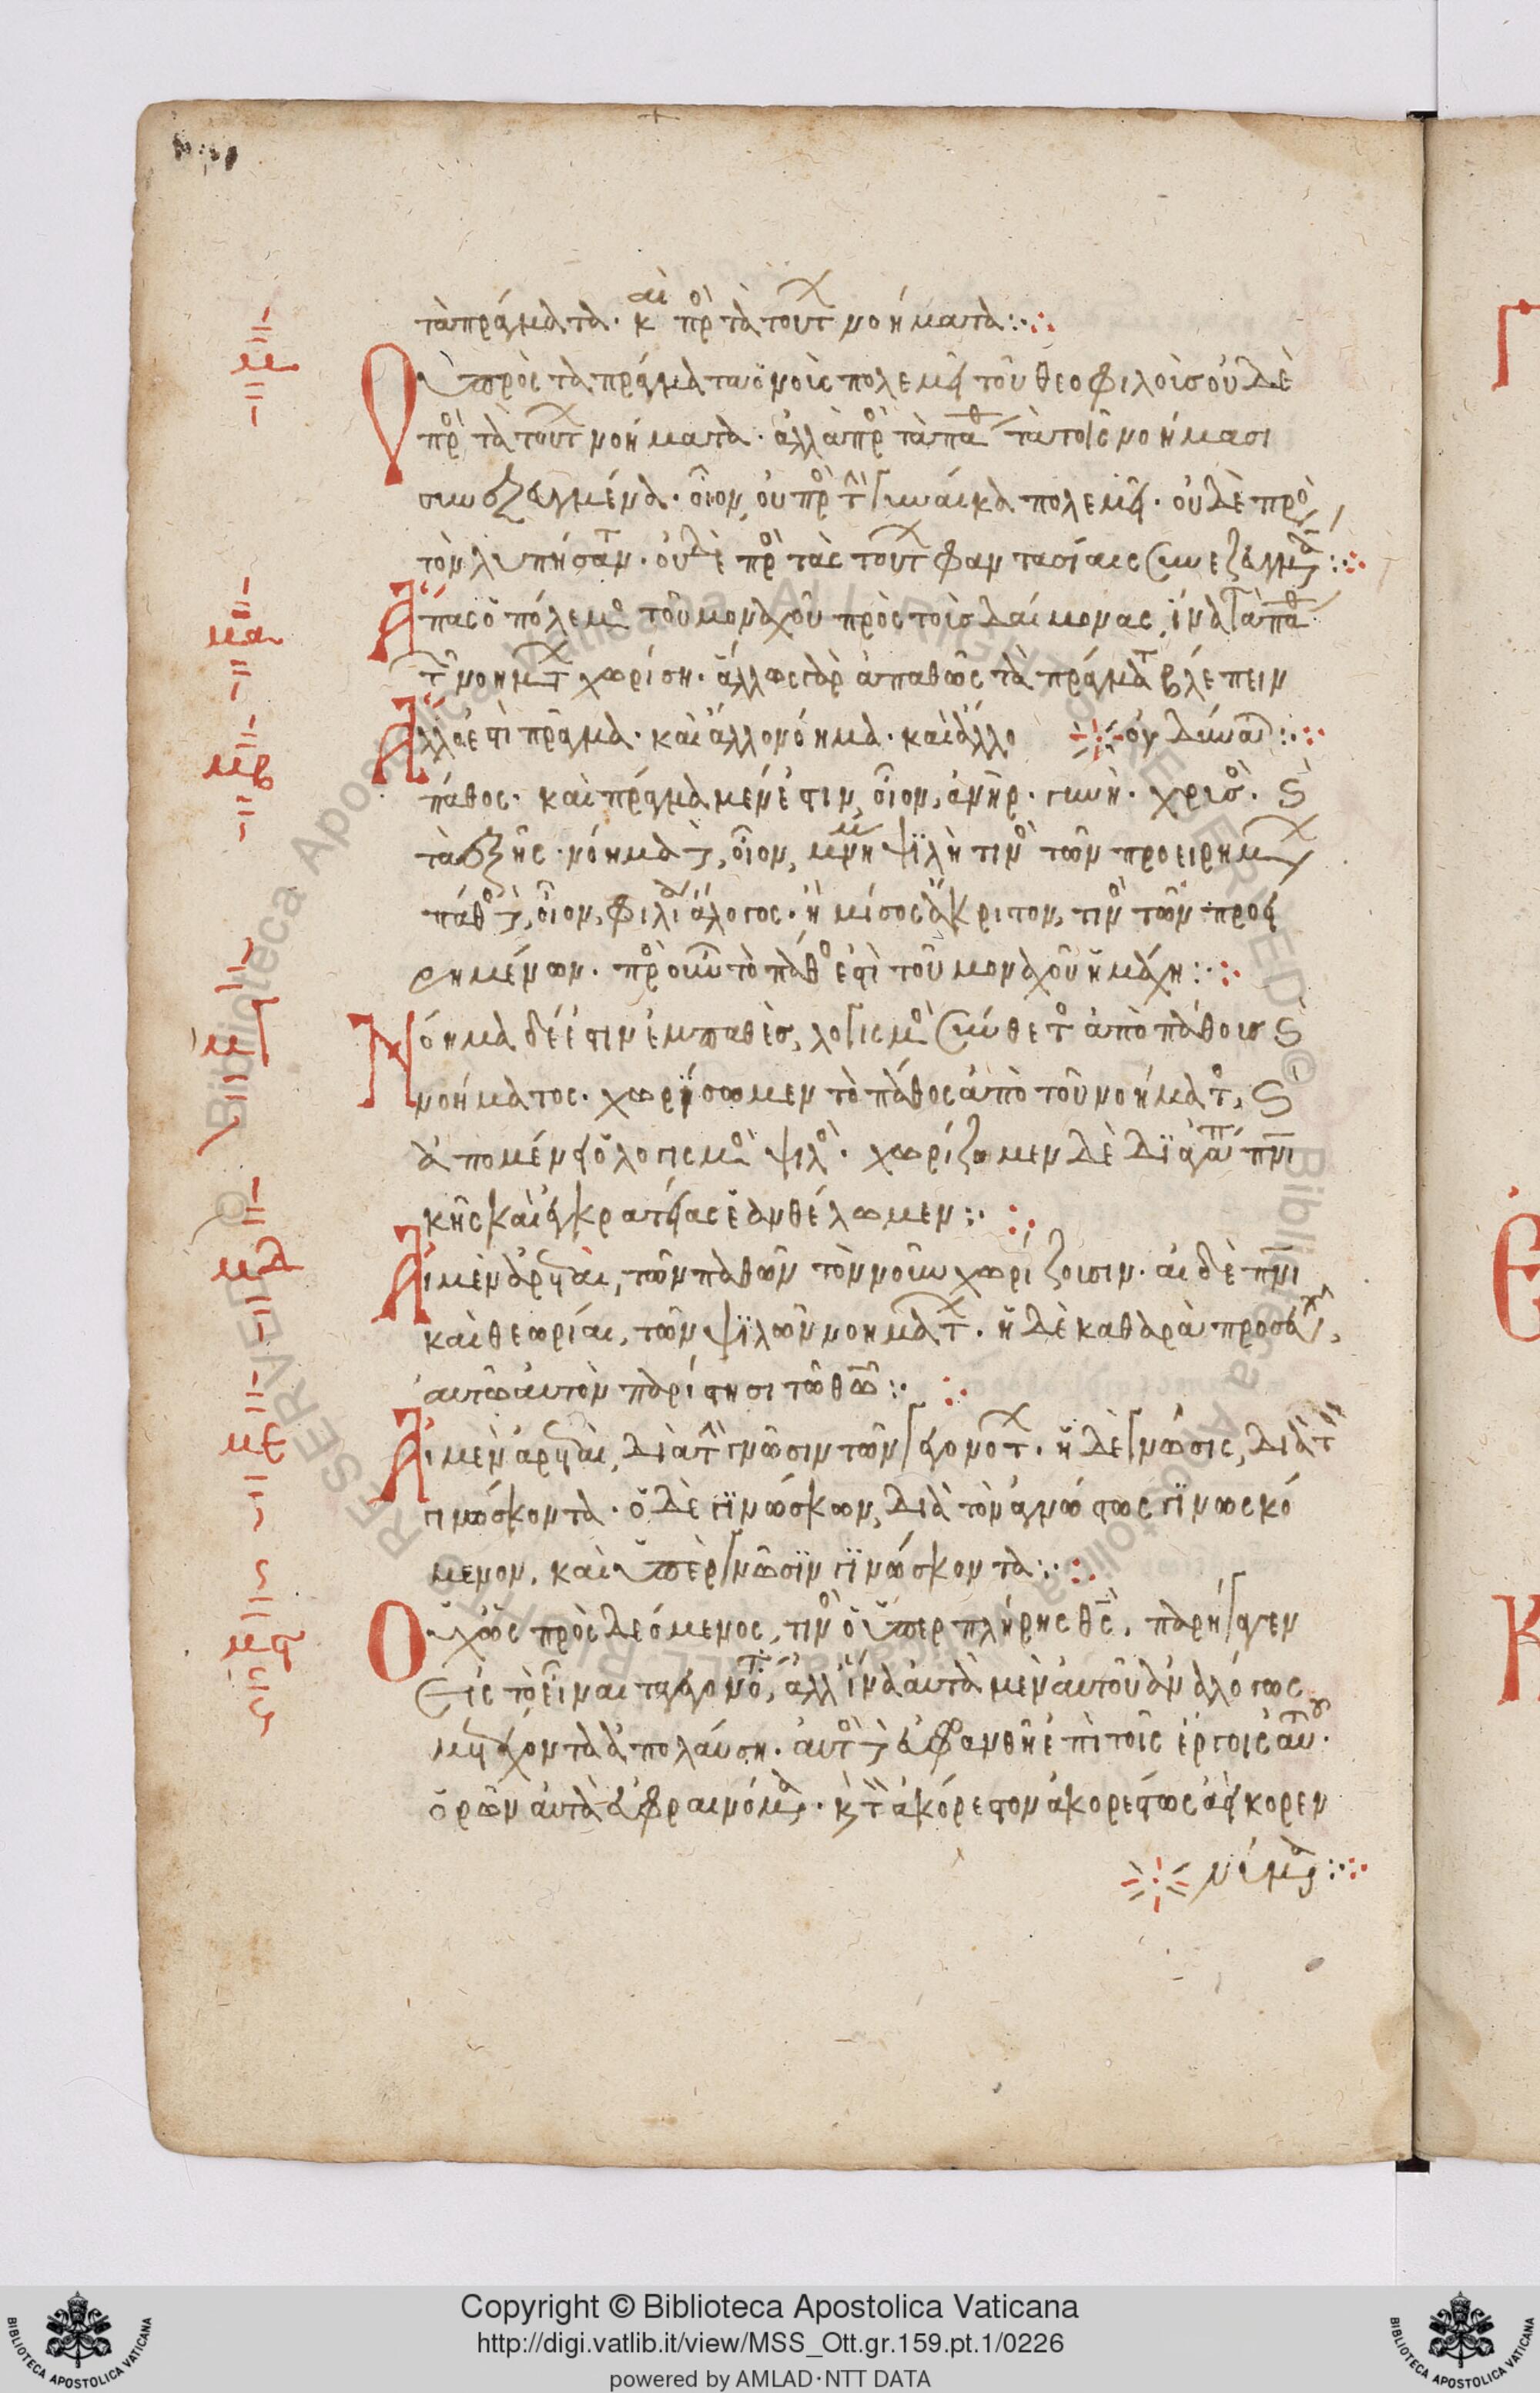 τὰ πράγματα· καὶ πρὸς τὰ τούτων νοήματα:·
μ
Οὐ πρὸς τὰ πράγματα ὁ νοῦς πολεμεῖ τοῦ θεοφιλοῦς οὐδὲ
πρὸς τὰ τούτων νοήματα· ἀλλὰ πρὸς τὰ πάθη τὰ τοῖς νοήμασι
συνεζευγμένα· οἷον, οὐ πρὸς τὴν γυναῖκα πολεμεῖ· οὐδὲ πρὸς
τὸν λυπήσαντα· οὐδὲ πρὸς τὰς τούτων φαντασίας συνεζευγμένα:·
μα
Ἅπας ὁ πόλεμος τοῦ μοναχοῦ πρὸς τοὺς δαίμονας, ἵνα τὰ πάθη
τῶν νοημάτων χωρίση· ἄλλως γὰρ ἀπαθῶς τὰ πράγματα βλέπειν
οὐ δύναται:·
μβ
Ἄλλο ἐστὶ πρᾶγμα· καὶ ἄλλο νόημα· καὶ ἄλλο
πάθος· καὶ πρᾶγμα μέν ἐστιν, οἷον, ἀνὴρ· γυνὴ· χρυσὸς· καὶ
τὰ ἑξῆς· νόημα δὲ, οἷον, μνήμη ψιλὴ τινὸς τῶν προειρημένων
πάθος δὲ, οἷον, φιλία ἄλογος· ἢ μῖσος ἄκριτον, τινὸς τῶν προει
ρημένων· πρὸς οὖν τὸ πάθος ἐστὶ τοῦ μοναχοῦ ἡ μάχη:·
μγ
Νόημά δέ ἐστιν ἐμπαθὲς, λογισμὸς σύνθετος ἀπὸ πάθους καὶ
νοήματος· χωρίσωμεν τὸ πάθος ἀπὸ τοῦ νοήματος, καὶ
ἀπομένει ὁ λογισμὸς ψιλὸς· χωρίζομεν δὲ δι' ἀγάπης πνευματι
κῆς καὶ ἐγκρατείας ἐὰν θέλωμεν:·
μδ
Αἱ μὲν ἀρεταὶ, τῶν παθῶν τὸν νοῦν χωρίζουσιν· αἱ δὲ πνευματικαὶ
καὶ θεωρίαι, τῶν ψιλῶν νοημάτων· ἡ δὲ καθαρὰ προσευχὴ,
αὐτῶ αὐτὸν παρίστησι τῶ θεῶ:·
με
Αἱ μὲν ἀρεταὶ, διὰ τὴν γνῶσιν τῶν γεγονότων· ἡ δὲ γνῶσις, διὰ τὸν
γινώσκοντα· ὁ δὲ γινώσκων, διὰ τὸν ἀγνώστως γινωσκό
μενον, καὶ ὑπὲρ γνῶσιν γινώσκοντα:·
μϛ
Οὐχ ὡς προσδεόμενος, τινὸς ὁ ὑπερπλήρης θεὸς, παρήγαγεν
εἰς τὸ εἶναι τὰ γεγονότα, ἀλλ' ἵνα αὐτὰ μὲν αὐτοῦ ἀναλόγως
μετέχοντα ἀπολαύση· αὐτὸς δὲ εὐφρανθῆ ἐπὶ τοῖς ἔργοις αὐτοῦ·
ὁρῶν αὐτὰ εὐφραινόμενα· καὶ τὸν ἀκόρεστον ἀκορέστως ἀεὶ κορεν
νύμενα:·
Copyright © Biblioteca Apostolica Vaticana
http://digi.vatlib.it/view/MSS_Ott.gr.159.pt.1/0226
powered by AMLAD·NTT DATA